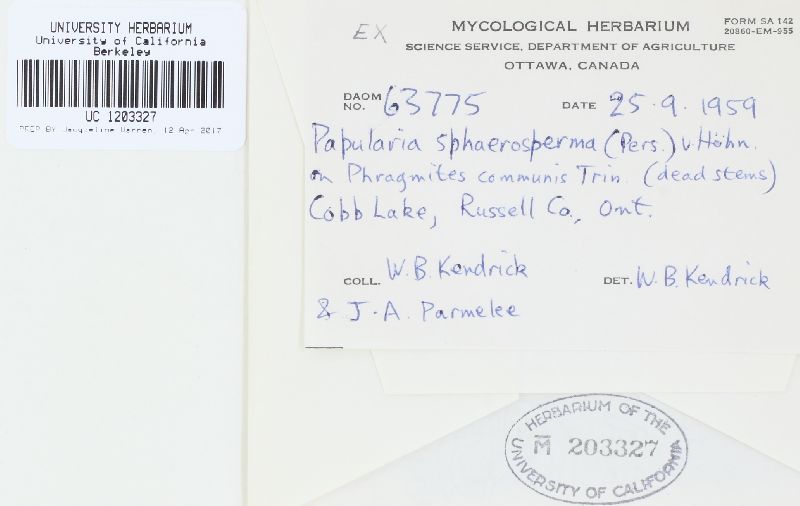 UNIVERSITY HERBARIUM
University of California
Berkeley
UC 1203327
PREP BY Jacqueline Warren, 12 Apr 2017
EX
MYCOLOGICAL HERBARIUM
FORM SA 142
20860-EM-955
SCIENCE SERVICE, DEPARTMENT OF AGRICULTURE
OTTAWA, CANADA
DAOM NO. 63775 DATE 25.9.1959
Papularia sphaerosperma (Pers.) v Höhn.
on Phragmites communis Trin. (dead stems)
Cobb Lake, Russell Co., Ont.
COLL. W.B. Kendrick DET. W.B. Kendrick
& J.A. Parmelee
HERBARIUM OF THE
M 203327
UNIVERSITY OF CALIFORNIA